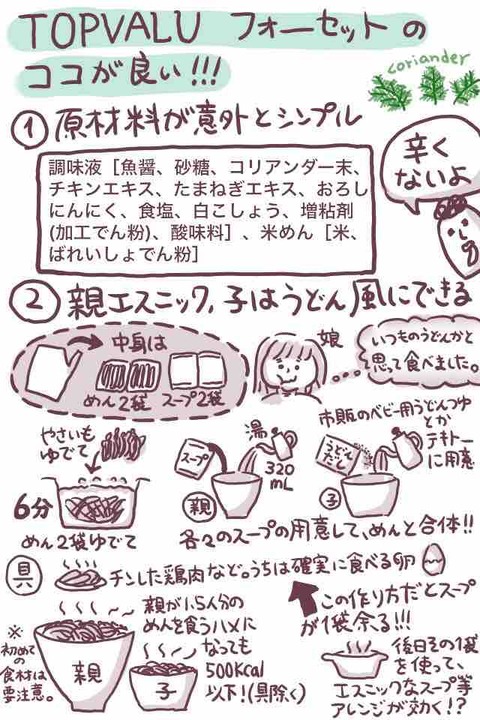 TOPVALU フォーセットの
ココが良い!!!
coriander
① 原材料が意外とシンプル
調味液[魚醤、砂糖、コリアンダー末、
チキンエキス、たまねぎエキス、おろし
にんにく、食塩、白こしょう、増粘剤
(加工でん粉)、酸味料]、米めん[米、
ばれいしょでん粉]
辛く
ないよ
② 親エスニック,子はうどん風にできる
中身は
めん2袋 スープ2袋
娘
いつものうどんかと
思って食べました。
やさいも
ゆでて
6分
めん2袋ゆでて
スープ
湯
320
mL
親
市販のベビー用うどんつゆ
とか
テキトー
に用意
うどん
だし
子
各々のスープの用意して、めんと合体!!
具
チンした鶏肉など。うちは確実に食べる卵
この作り方だとスープ
が1袋余る!!!
※
初めて
の
食材は
要注意。
親
子
親が1.5人分の
めんを食うハメに
なっても
500Kcal
以下!(具除く)
後日その1袋
を使って、
エスニックなスープ等
アレンジが効く!?